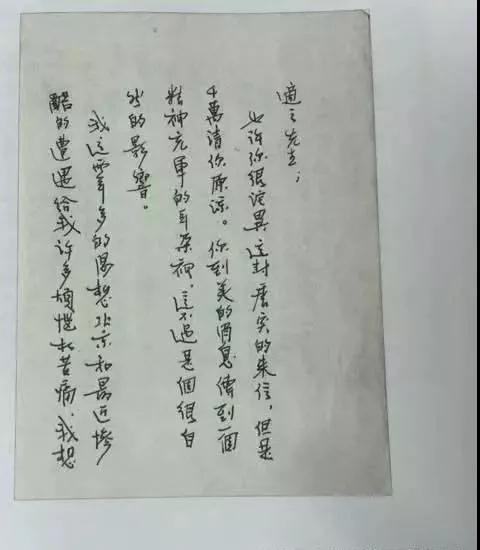 適之先生；
也許你很詫異這封唐突的来信，但是
千萬请你原諒。你到美的消息傳到一個
精神充軍的耳朵裡，這不過是個很自
然的影響。
我這両年多的渴想北京和最近慘
酷的遭遇给我許多煩惱和苦痛。我想